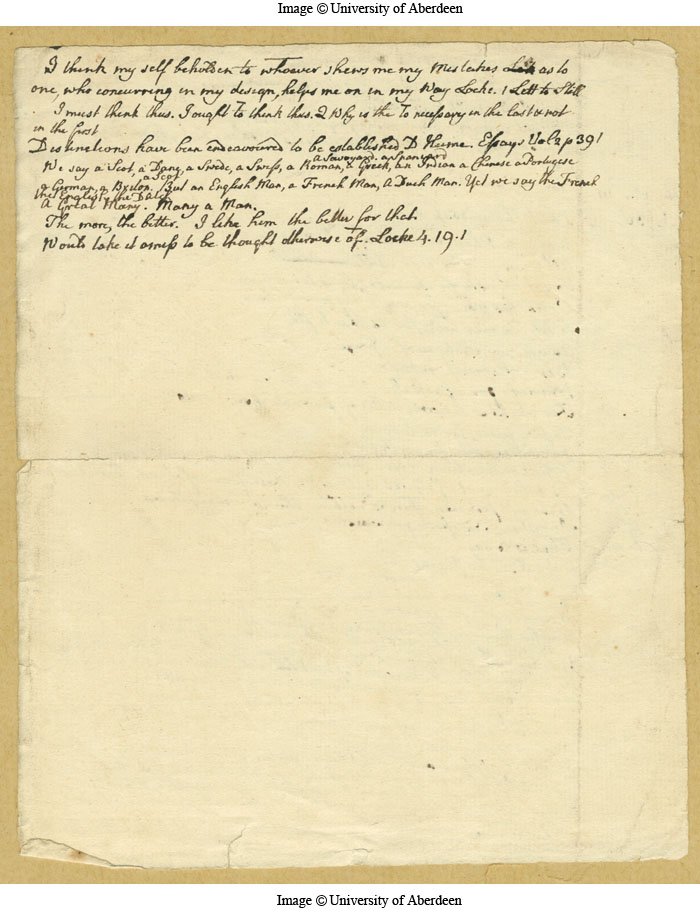 Image © University of Aberdeen
I think my self beholden to whoever shews me my mistakes as to
one, who concurring in my design, helps me on in my way Locke. 1 Lett to Still
I must think thus. I ought to think thus. Q Why is the To necessary in the last & not
in the first
Distinctions have been endeavoured to be established D Hume. Essays Vol 2 p 391
a Savoyard. a Spaniard
We say a Scot, a Dane, a Swede, a Swiss, a Roman, a Greek, an Indian a Chinese a Portugese
a Scot
a German, a Briton, But an English Man, a French Man, A Duch Man. Yet we say the French
the English the Dutch
A Great Many. Many a Man.
The more, the bitter. I like him the better for that.
Would take it amiss to be thought otherwise of. Locke 4. 19. 1
Image © University of Aberdeen